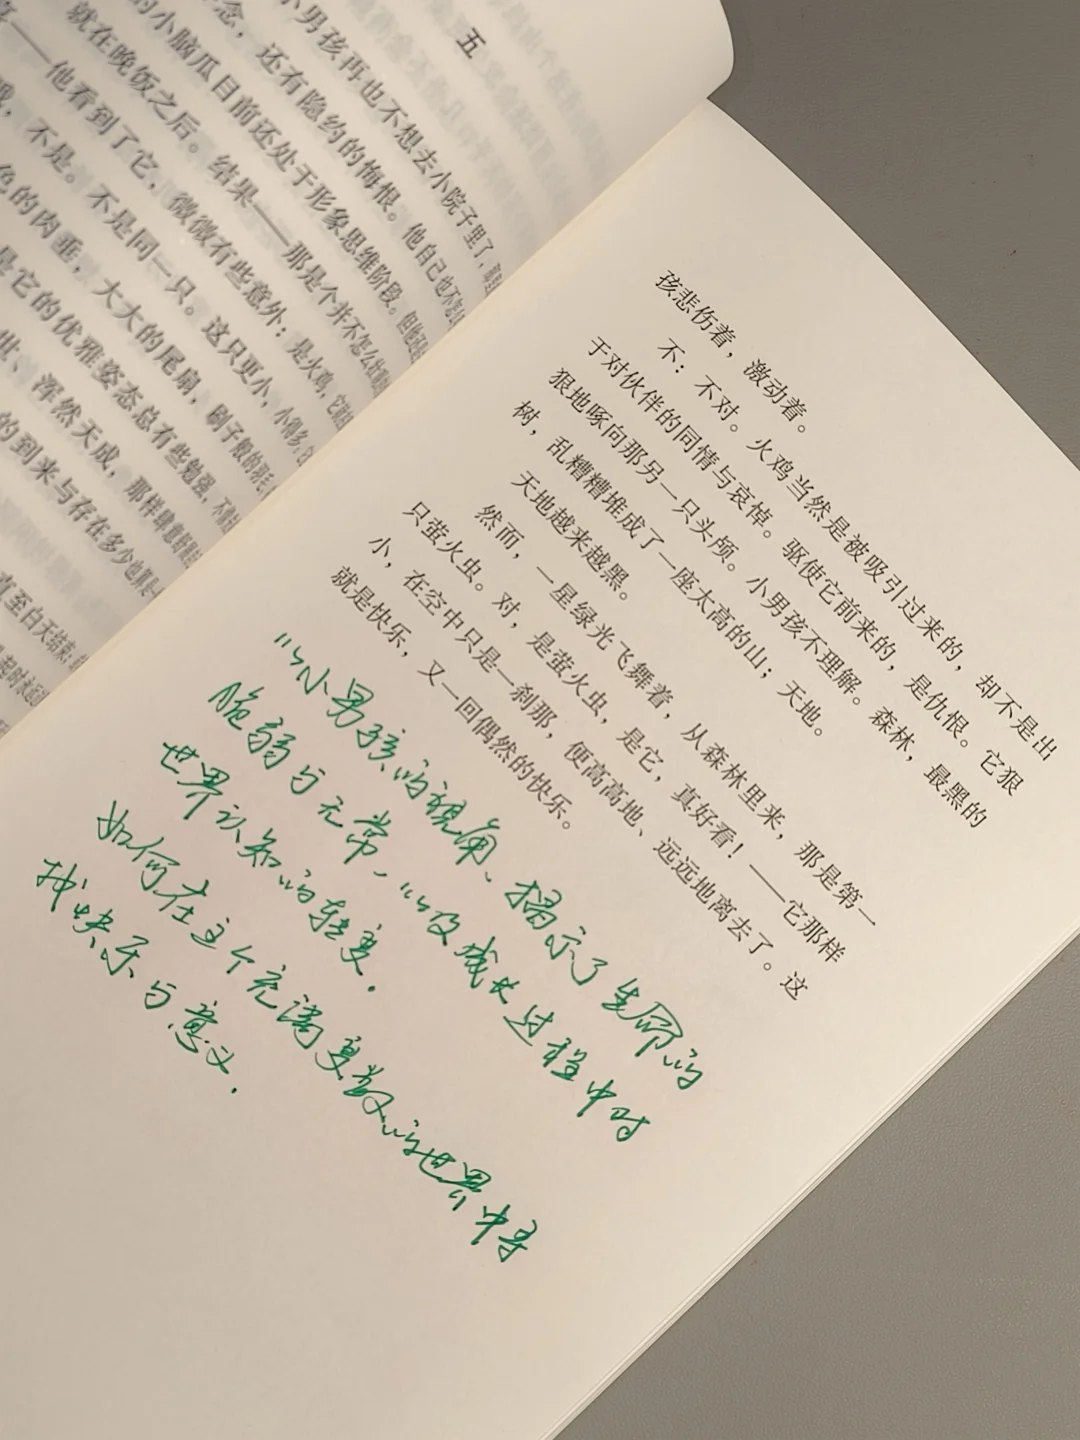 五
小男孩再也不想去小院子里了，
念，还有隐约的悔恨。他自己也不怎么
的小脑瓜目前还处于形象思维阶段。但他还是
就在晚饭之后。结果——那是个并不怎么壮观的
——他看到了它，微微有些意外：是火鸡，它
不是。不是同一只。这只更小，小得多，
色的肉垂，大大的尾扇，刷子般的羽毛
是它的优雅姿态总有些勉强，不像
世、浑然天成，那样肆意
的到来与存在多少也算是
直至白天结束，
孩悲伤着，激动着。
不：不对。火鸡当然是被吸引过来的，却不是出
于对伙伴的同情与哀悼。驱使它前来的，是仇恨。它狠
狠地啄向那另一只头颅。小男孩不理解。森林，最黑的
树，乱糟糟堆成了一座太高的山；天地。
天地越来越黑。
然而，一星绿光飞舞着，从森林里来，那是第一
只萤火虫。对，是萤火虫，是它，真好看！——它那样
小，在空中只是一刹那，便高高地、远远地离去了。这
就是快乐，又一回偶然的快乐。
"以小男孩的视角、揭示了生命的
脆弱与无常，以及成长过程中对
世界认知的转变.
如何在这个充满变数的世界中寻
找快乐与意义.